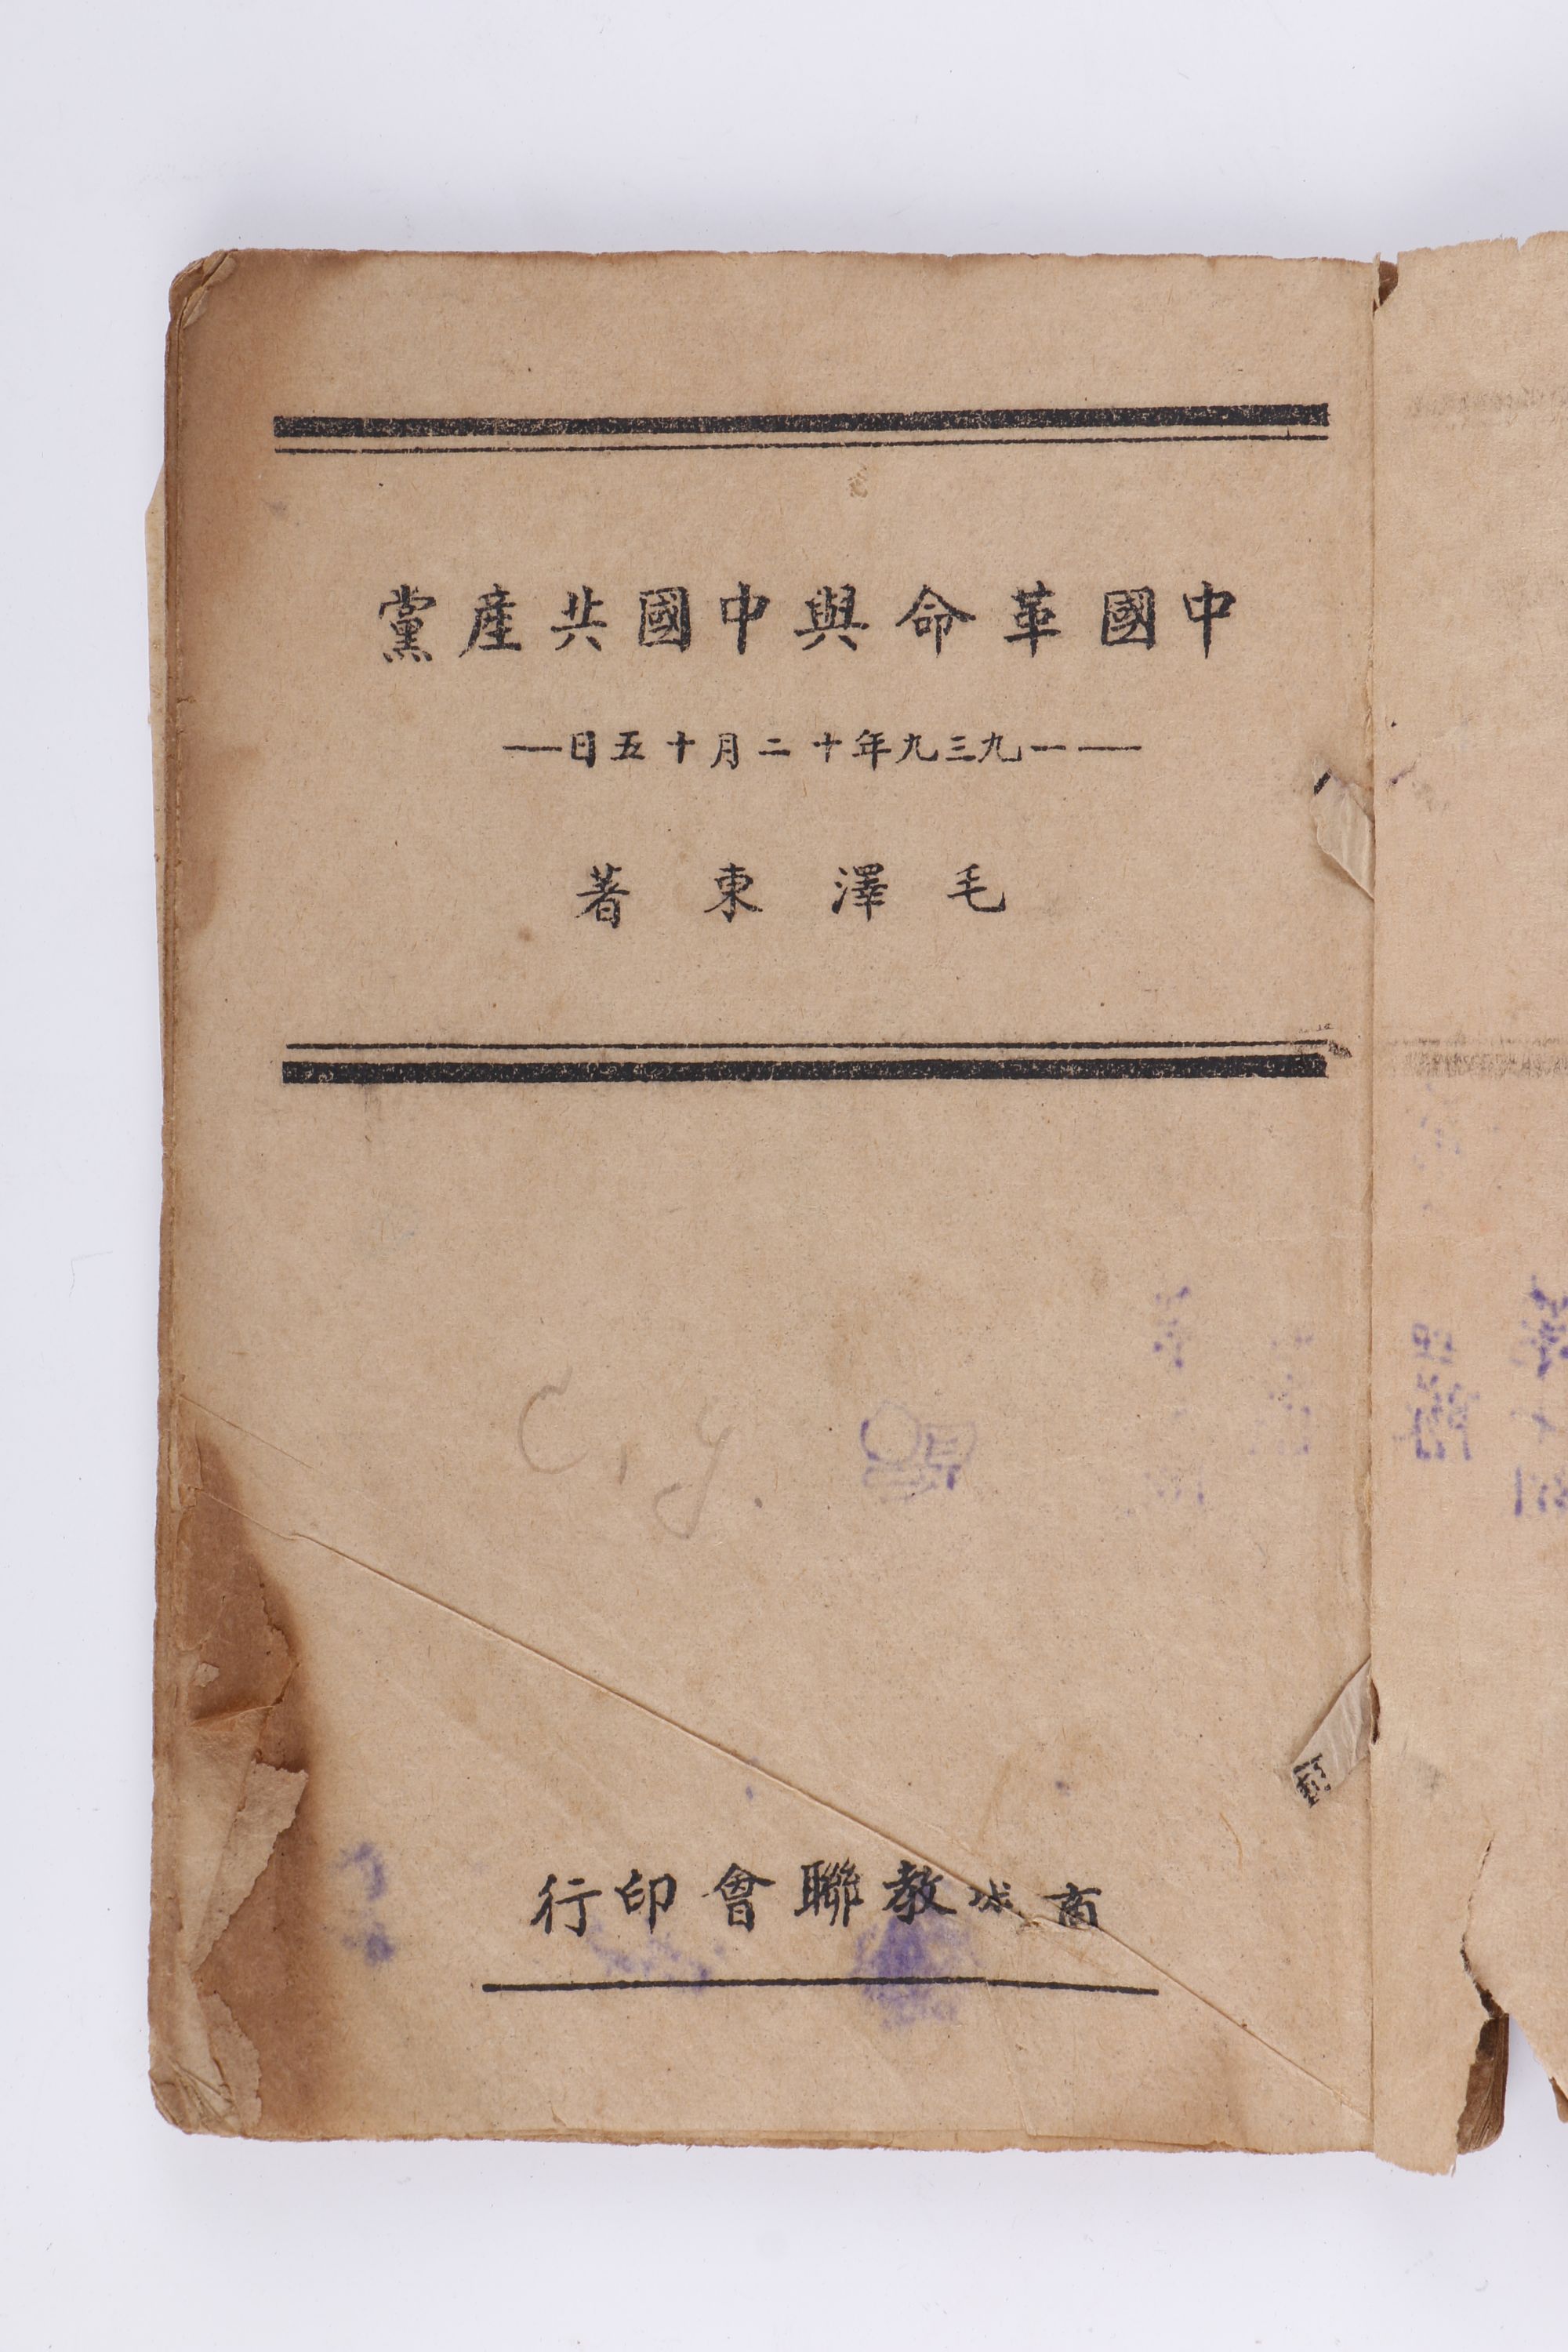 中國革命與中國共產黨
——一九三九年十二月十五日——
毛澤東著
C, y.
商城教聯會印行